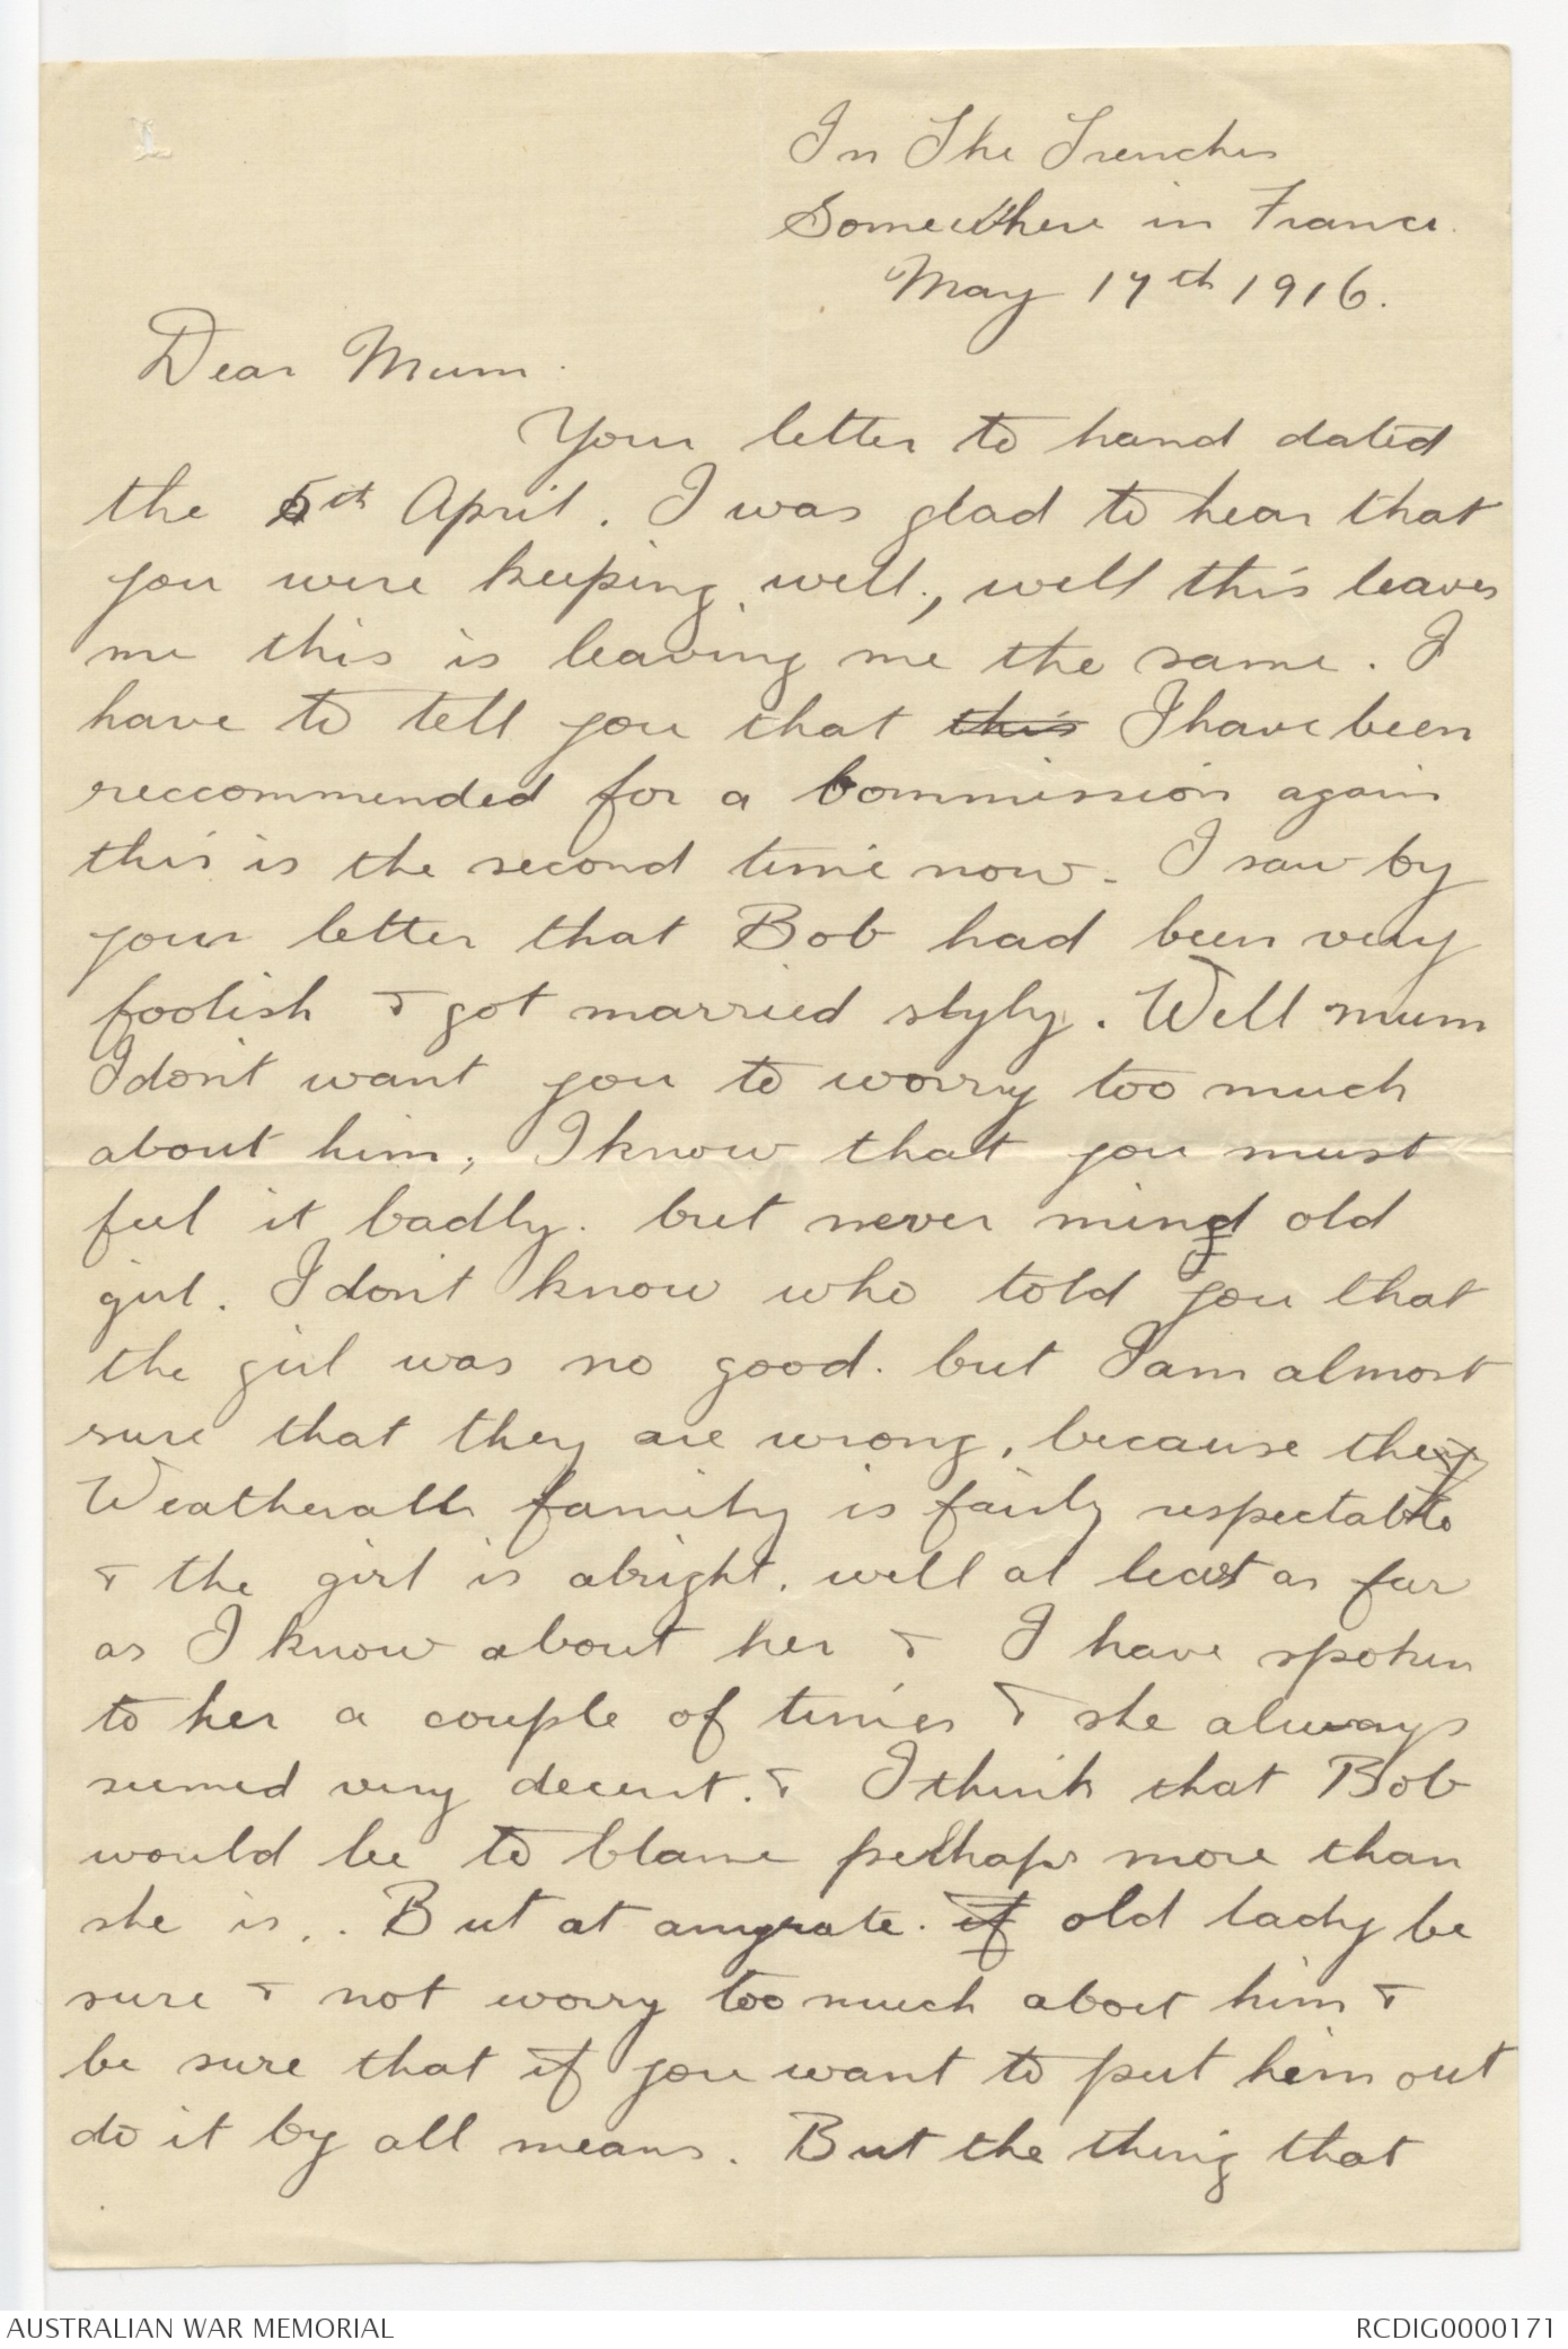 In The Trenches
Somewhere in France.
May 17th 1916.
Dear Mum.
Your letter to hand dated
the 5th April. I was glad to hear that
you were keeping well., well this leaves
me this is leaving me the same. I
have to tell you that this I have been
reccommended for a Commission again
this is the second time now. I saw by
your letter that Bob had been very
foolish & got married slyly. Well mum
I don't want you to worry too much
about him, I know that you must
feel it badly. but never mind old
girl. I don't know who told you that
the girl was no good. but I am almost
sure that they are wrong, because they
Weatherall family is fairly respectable
& the girl is alright. well at least as far
as I know about her & I have spoken
to her a couple of times & she always
seemed very decent. & I think that Bob
would be to blame perhaps more than
she is.. But at anyrate. if old lady be
sure & not worry too much about him &
be sure that if you want to put him out
do it by all means. But the thing that
AUSTRALIAN WAR MEMORIAL
RCDIG0000171